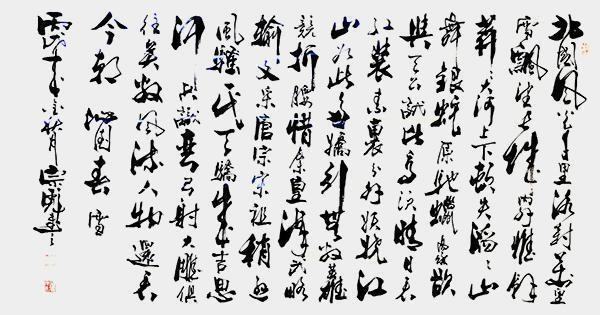 北國風光千里冰封萬里
雪飄望長城內外惟餘
莽莽大河上下頓失滔滔山
舞銀蛇原馳蠟象欲
與天公試比高須晴日看
紅裝素裹分外妖嬈江
山如此多嬌引無數英雄
競折腰惜秦皇漢武略
輸文采唐宗宋祖稍遜
風騷一代天驕成吉思
汗只識彎弓射大雕俱
往矣數風流人物還看
今朝 沁園春 雪